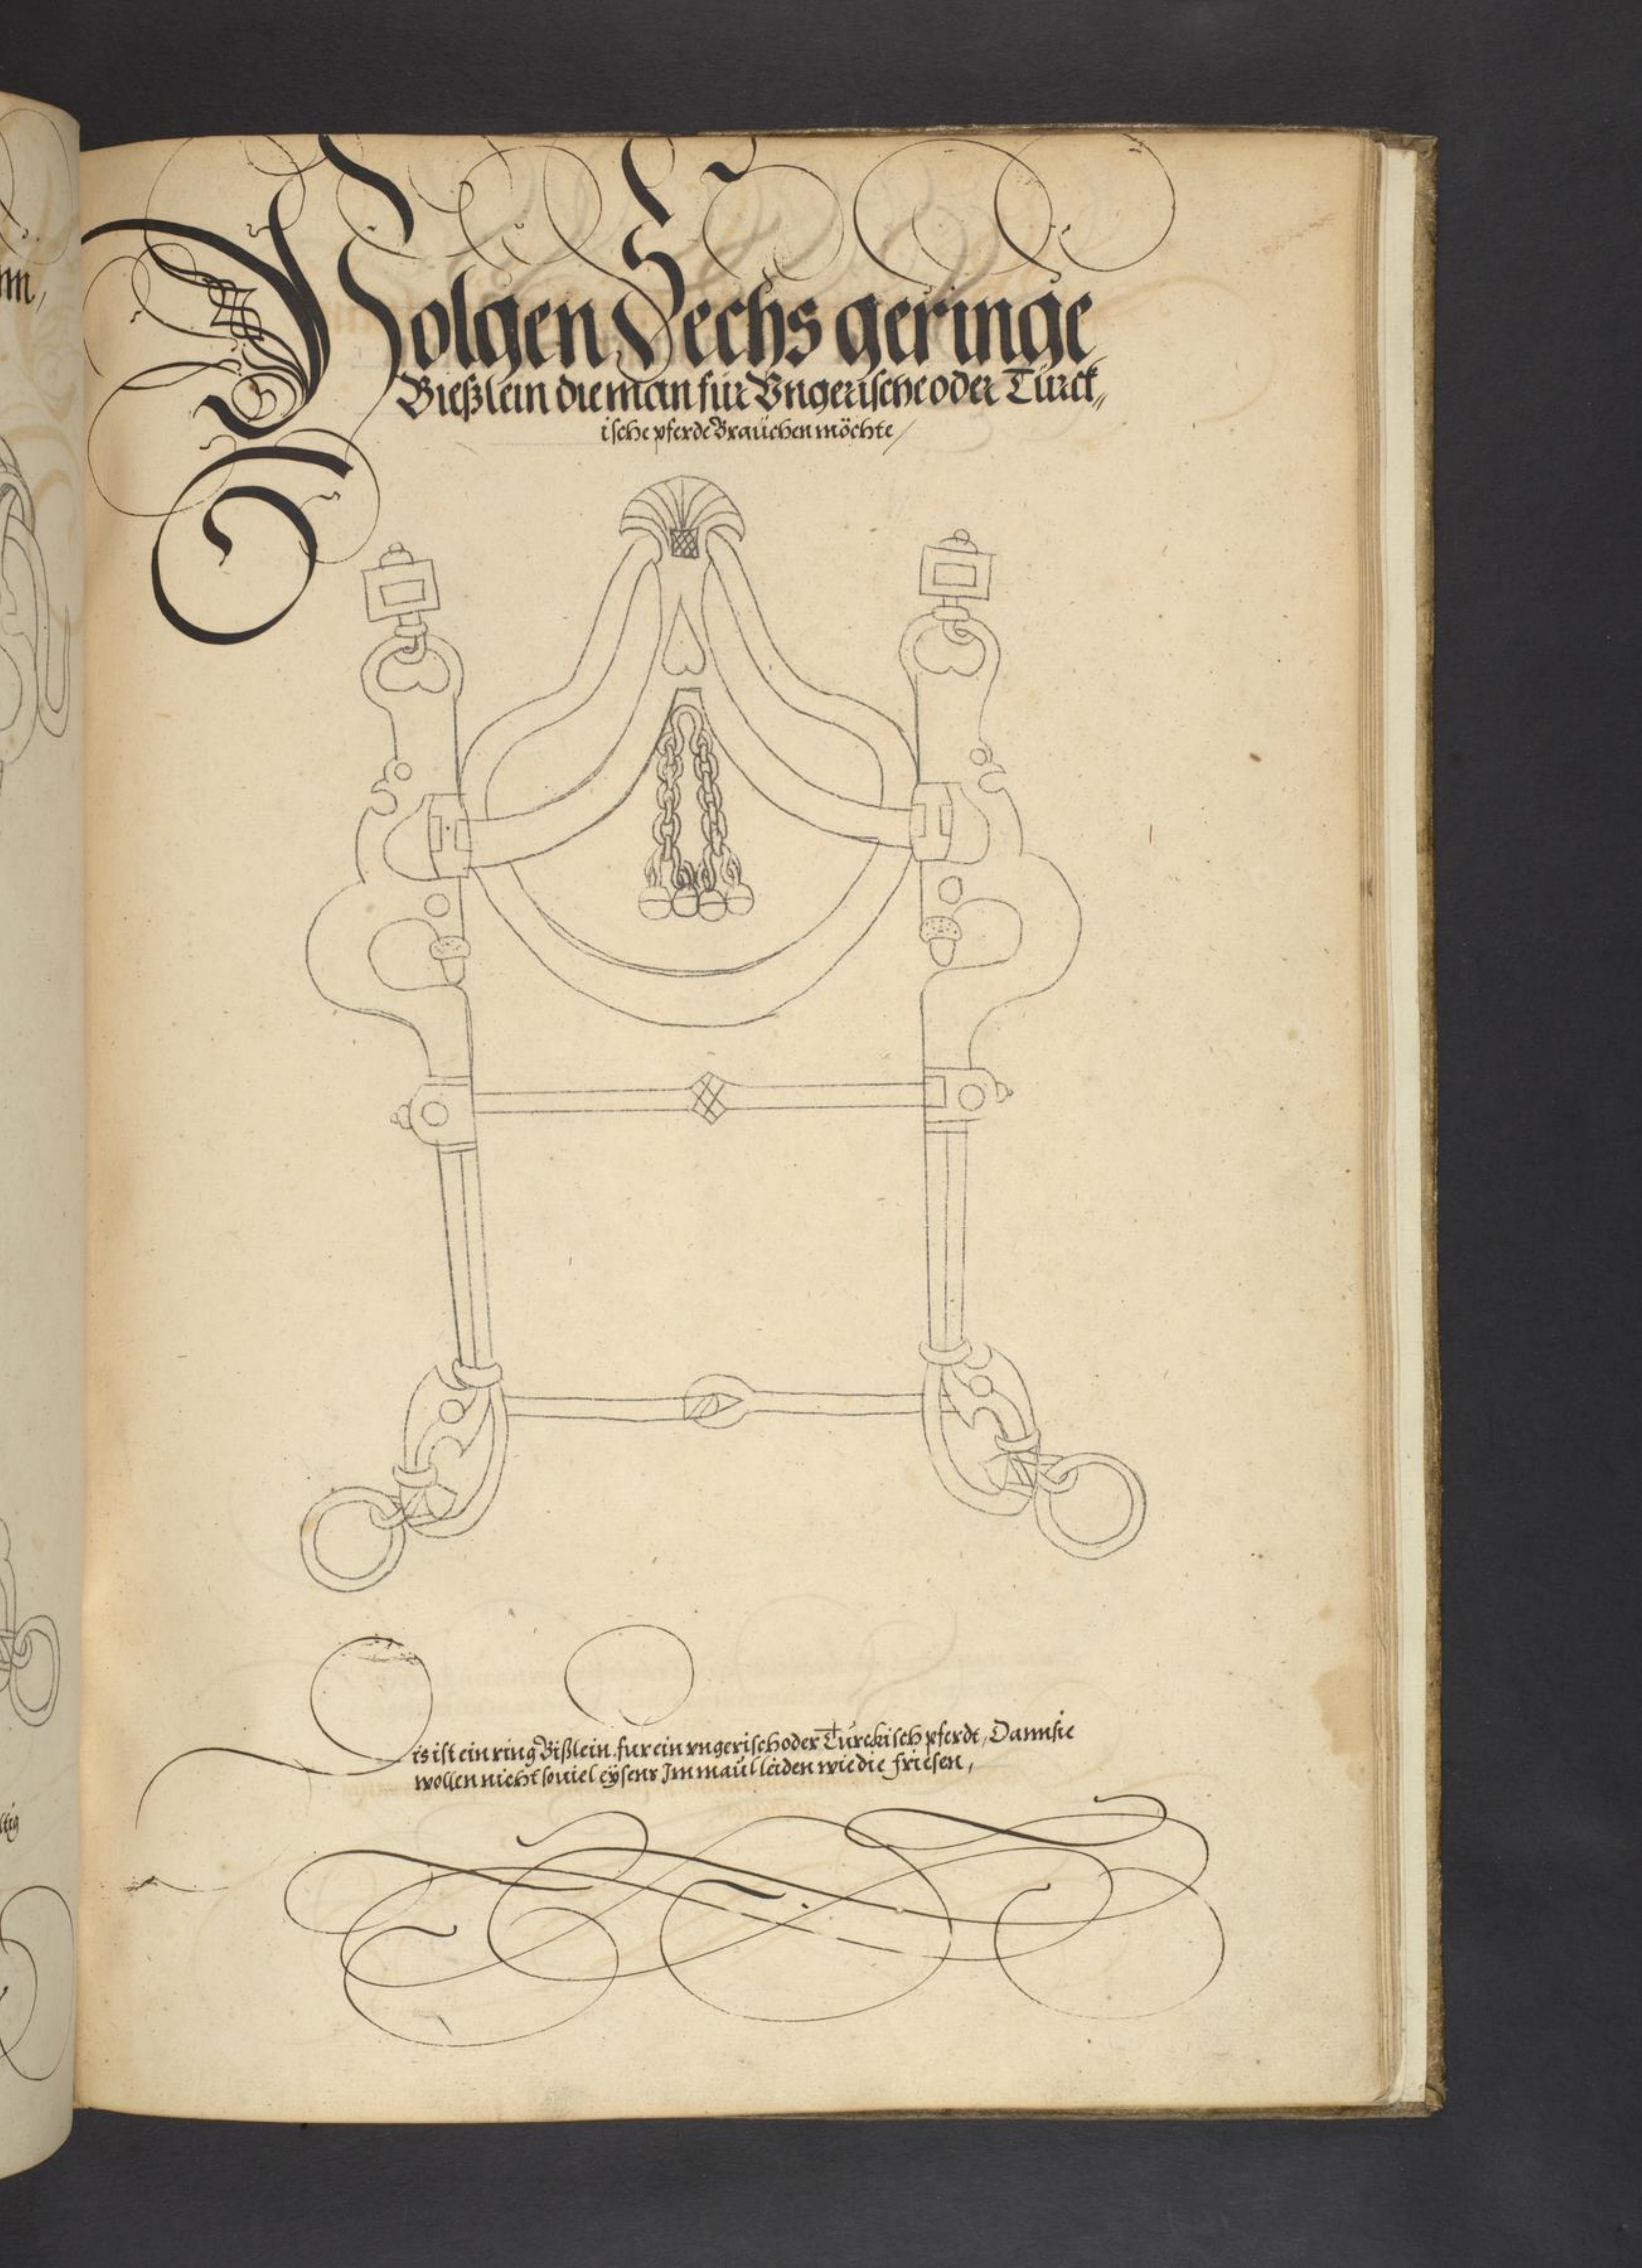 Volgen Sechs geringe
Bießlein die man für Vngerische oder Türck„
ische pferde Braüchen möchte /
is ist ein ring Bißlein fur ein vngerisch oder Türckisch pferdt, Dann sie
wollen nicht souiel eÿsens Im maül leiden wie die friesen,